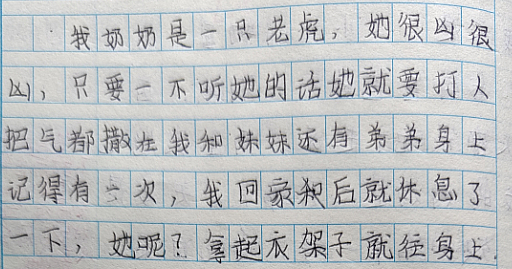 我奶奶是一只老虎，她很凶很
凶，只要一不听她的话她就要打人
把气都撒在我和妹妹还有弟弟身上
记得有一次，我回家后就休息了
一下，她呢？拿起衣架子就往身上